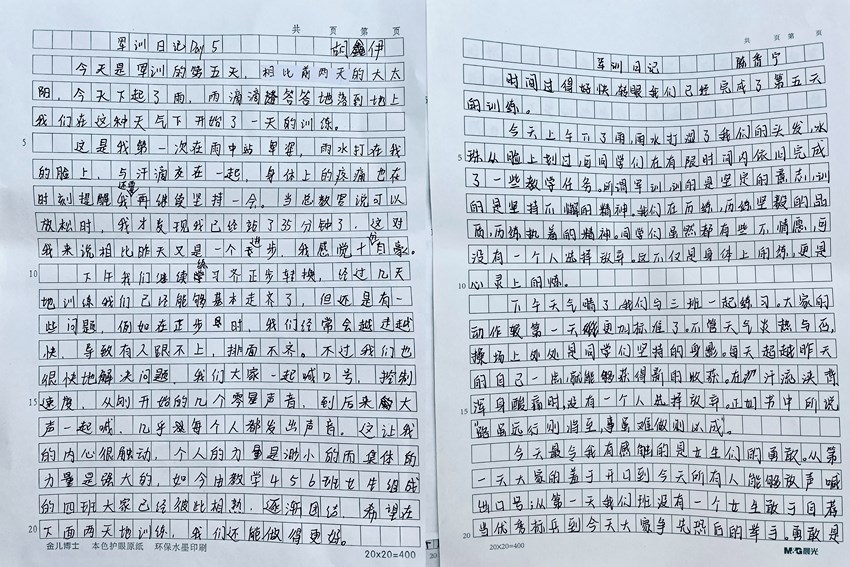 共 页 第 页
军训日记Day 5 胡鑫伊
今天是军训的第五天，相比前两天的大太
阳，今天下起了雨，雨滴滴答答地落到地上
我们在这种天气下开始了一天的训练。
5 这是我第一次在雨中站军姿，雨水打在我
的脸上，与汗滴夹在一起，身体上的疼痛也在
时刻提醒我还要再继续坚持一会。当总教官说可以
放松时，我才发现我已经站了35分钟了，这对
我来说相比昨天又是一个进步，我感觉十分自豪。
10 下午我们继续练习齐正步转换，经过几天
地训练我们已经能够基本走齐了，但还是有一
些问题，例如在正步时，我们经常会越走越
快，导致有人跟不上，排面不齐。不过我们也
很快地解决问题，我们大家一起喊口号，控制
15 速度，从刚开始的几个零星声音，到后来大
声一起喊，几乎每个人都发出声音。这让我
的内心很触动，个人的力量是渺小的而集体的
力量是强大的，如今由教学456班女生组成
的四班大家已经彼此相熟，逐渐团结，希望在
20 下面两天地训练，我们还能做得更好。
金儿博士 本色护眼原纸 环保水墨印刷 20×20=400
共 页 第 页
军训日记 香宁
时间过得好快，转眼我们已经完成了第五天
的训练。
今天上午下了雨，雨水打湿了我们的头发，水
5 珠从脸上划过，可同学们在有限时间内依旧完成
了一些教学任务。所谓军训，训的是坚定的意志，训
的是坚持不懈的精神。我们在历练，历练坚毅的品
质，历练执着的精神。同学们虽然都有些不情愿，可
没有一个人选择放弃。这不仅是身体上的练，更是
10 心灵上的炼。
下午天气晴了，我们与三班一起练习。大家的
动作较第一天更加标准了。不管天气炎热与否，
操场上处处是同学们坚持的身影。每天超越昨天
的自己一点，就能够获得新的收获。在汗流浃背
15 浑身酸痛时，没有一个人选择放弃。正如书中所说
“路虽远行则将至，事虽难做则必成”。
今天最令我有感触的是女生们的勇敢。从第
一天大家的羞于开口到今天所有人能够放声喊
出口号；从第一天我们班没有一个女生敢于自荐
20 当优秀标兵到今天大家争先恐后的举手。勇敢是
20×20=400 M&G晨光